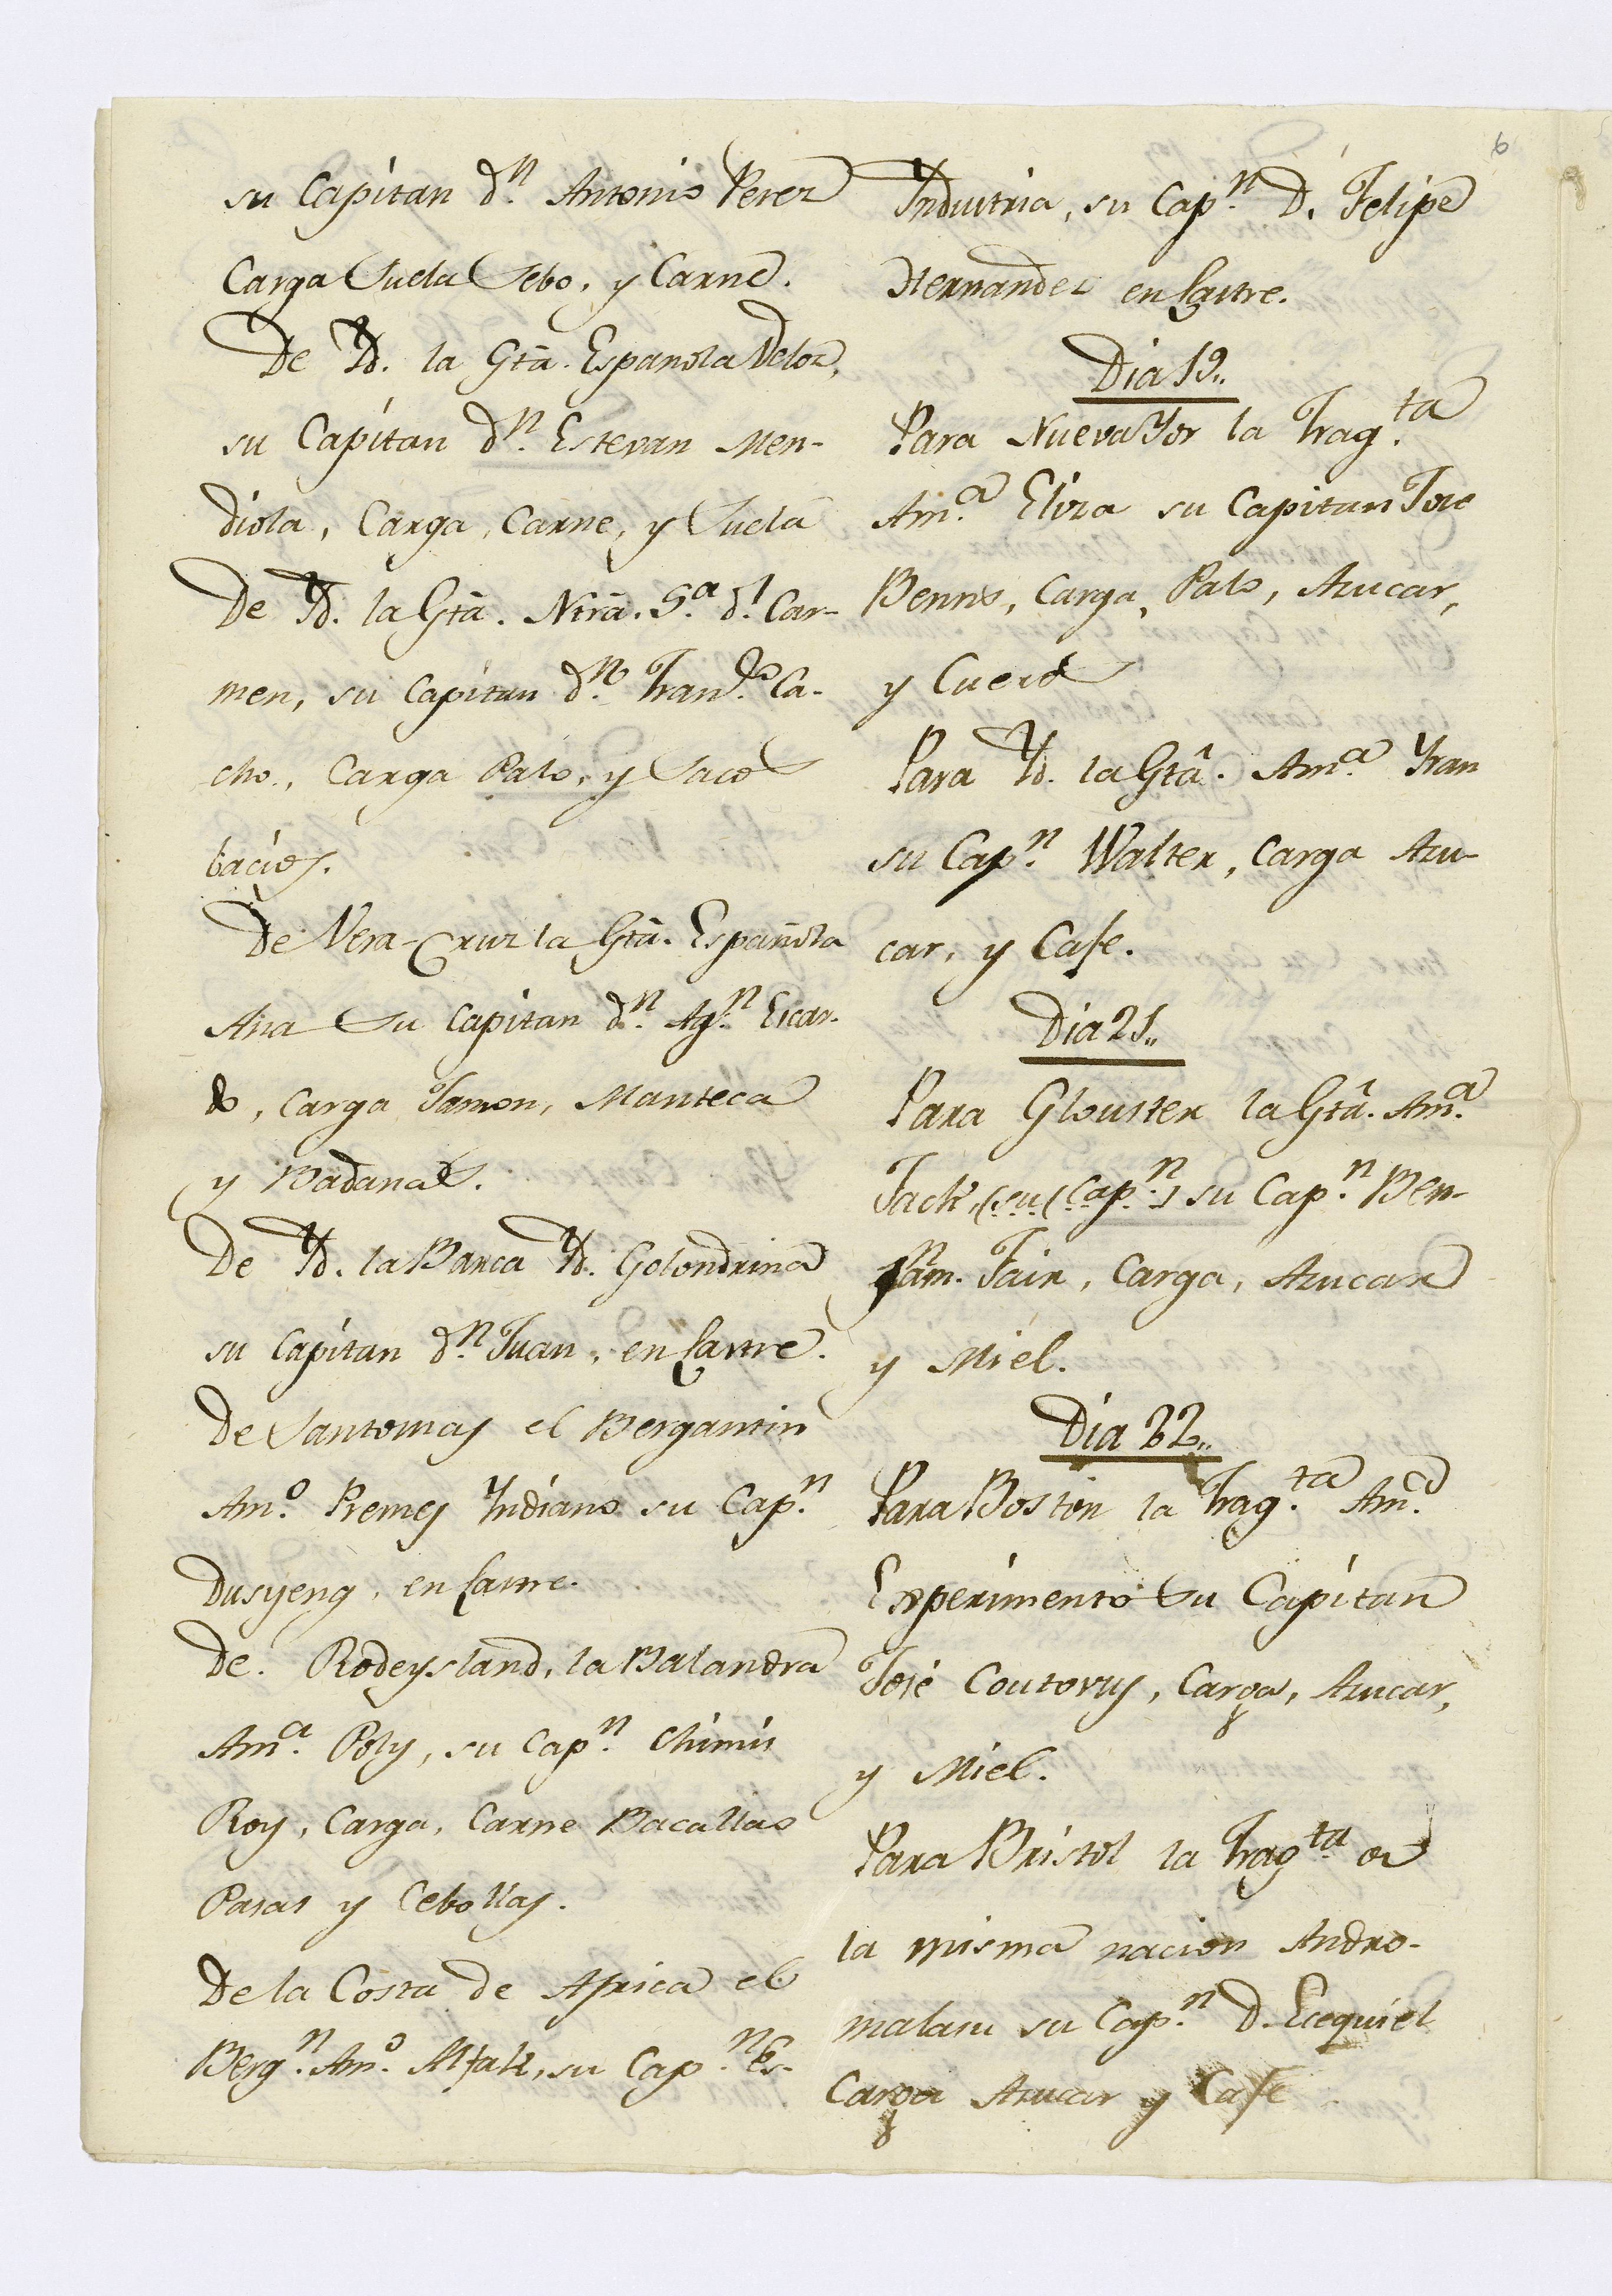 6
su Capitan dn. Antonio Perez
Carga Suela Sebo, y Carne.
De Yd. la Gtâ. Española Veloz,
su Capitan dn. Estevan Men-
diola, Carga, Carne, y Suela
De Yd. la Gtâ. Ntrâ. Sa. dl. Car-
men, su Capitan dn. Franco. Ca-
cho., Carga Palo, y Sacos
bacios.
De Vera-Cruz la Gtâ. Española
Ana Su Capitan dn. Agn. Escar-
do, Carga Jamon, Manteca
y Badanas.
De Yd. la Barca Yd. Golondrina
su Capitan dn. Juan, en Lastre.
De Santomas el Bergantin
Amo. Remes Yndiano su Capn.
Dusyeng, en Lastre.
De. Rodeysland, la Balandra
Ama. Poly, su Capn. Chimis
Roy, Carga, Carne Bacallao
Pasas y Cebollas.
De la Costa de Africa el
Bergn. Amo. su Capn. Es-
Yndustria, su Capn. D. Felipe
Hernandez en Lastre.
Dia 19,,
Para Nueva Yor la Fragta.
Ama. Eliza su Capitan Jose
Benns, Carga, Palo, Azucar,
y Cueros
Para Yd. la Gtâ. Ama. Yran
su Capn. Walter, Carga Azu-
car, y Cafe.
Dia 21,,
Para Glouster la Gtâ. Ama.
Jack, (su (Capn.) su Capn. Ben-
Fair, Carga, Azucar
y Miel.
Dia 22,,
Para Boston la Fragta. Ama.
Experimento Su Capitan
José Coutovys, Carga, Azucar,
y Miel.
Para Bristol la Fragta. de
la misma nacion Andro-
malasu su Capn. D. Ecequiel
Carga Azucar y Cafe